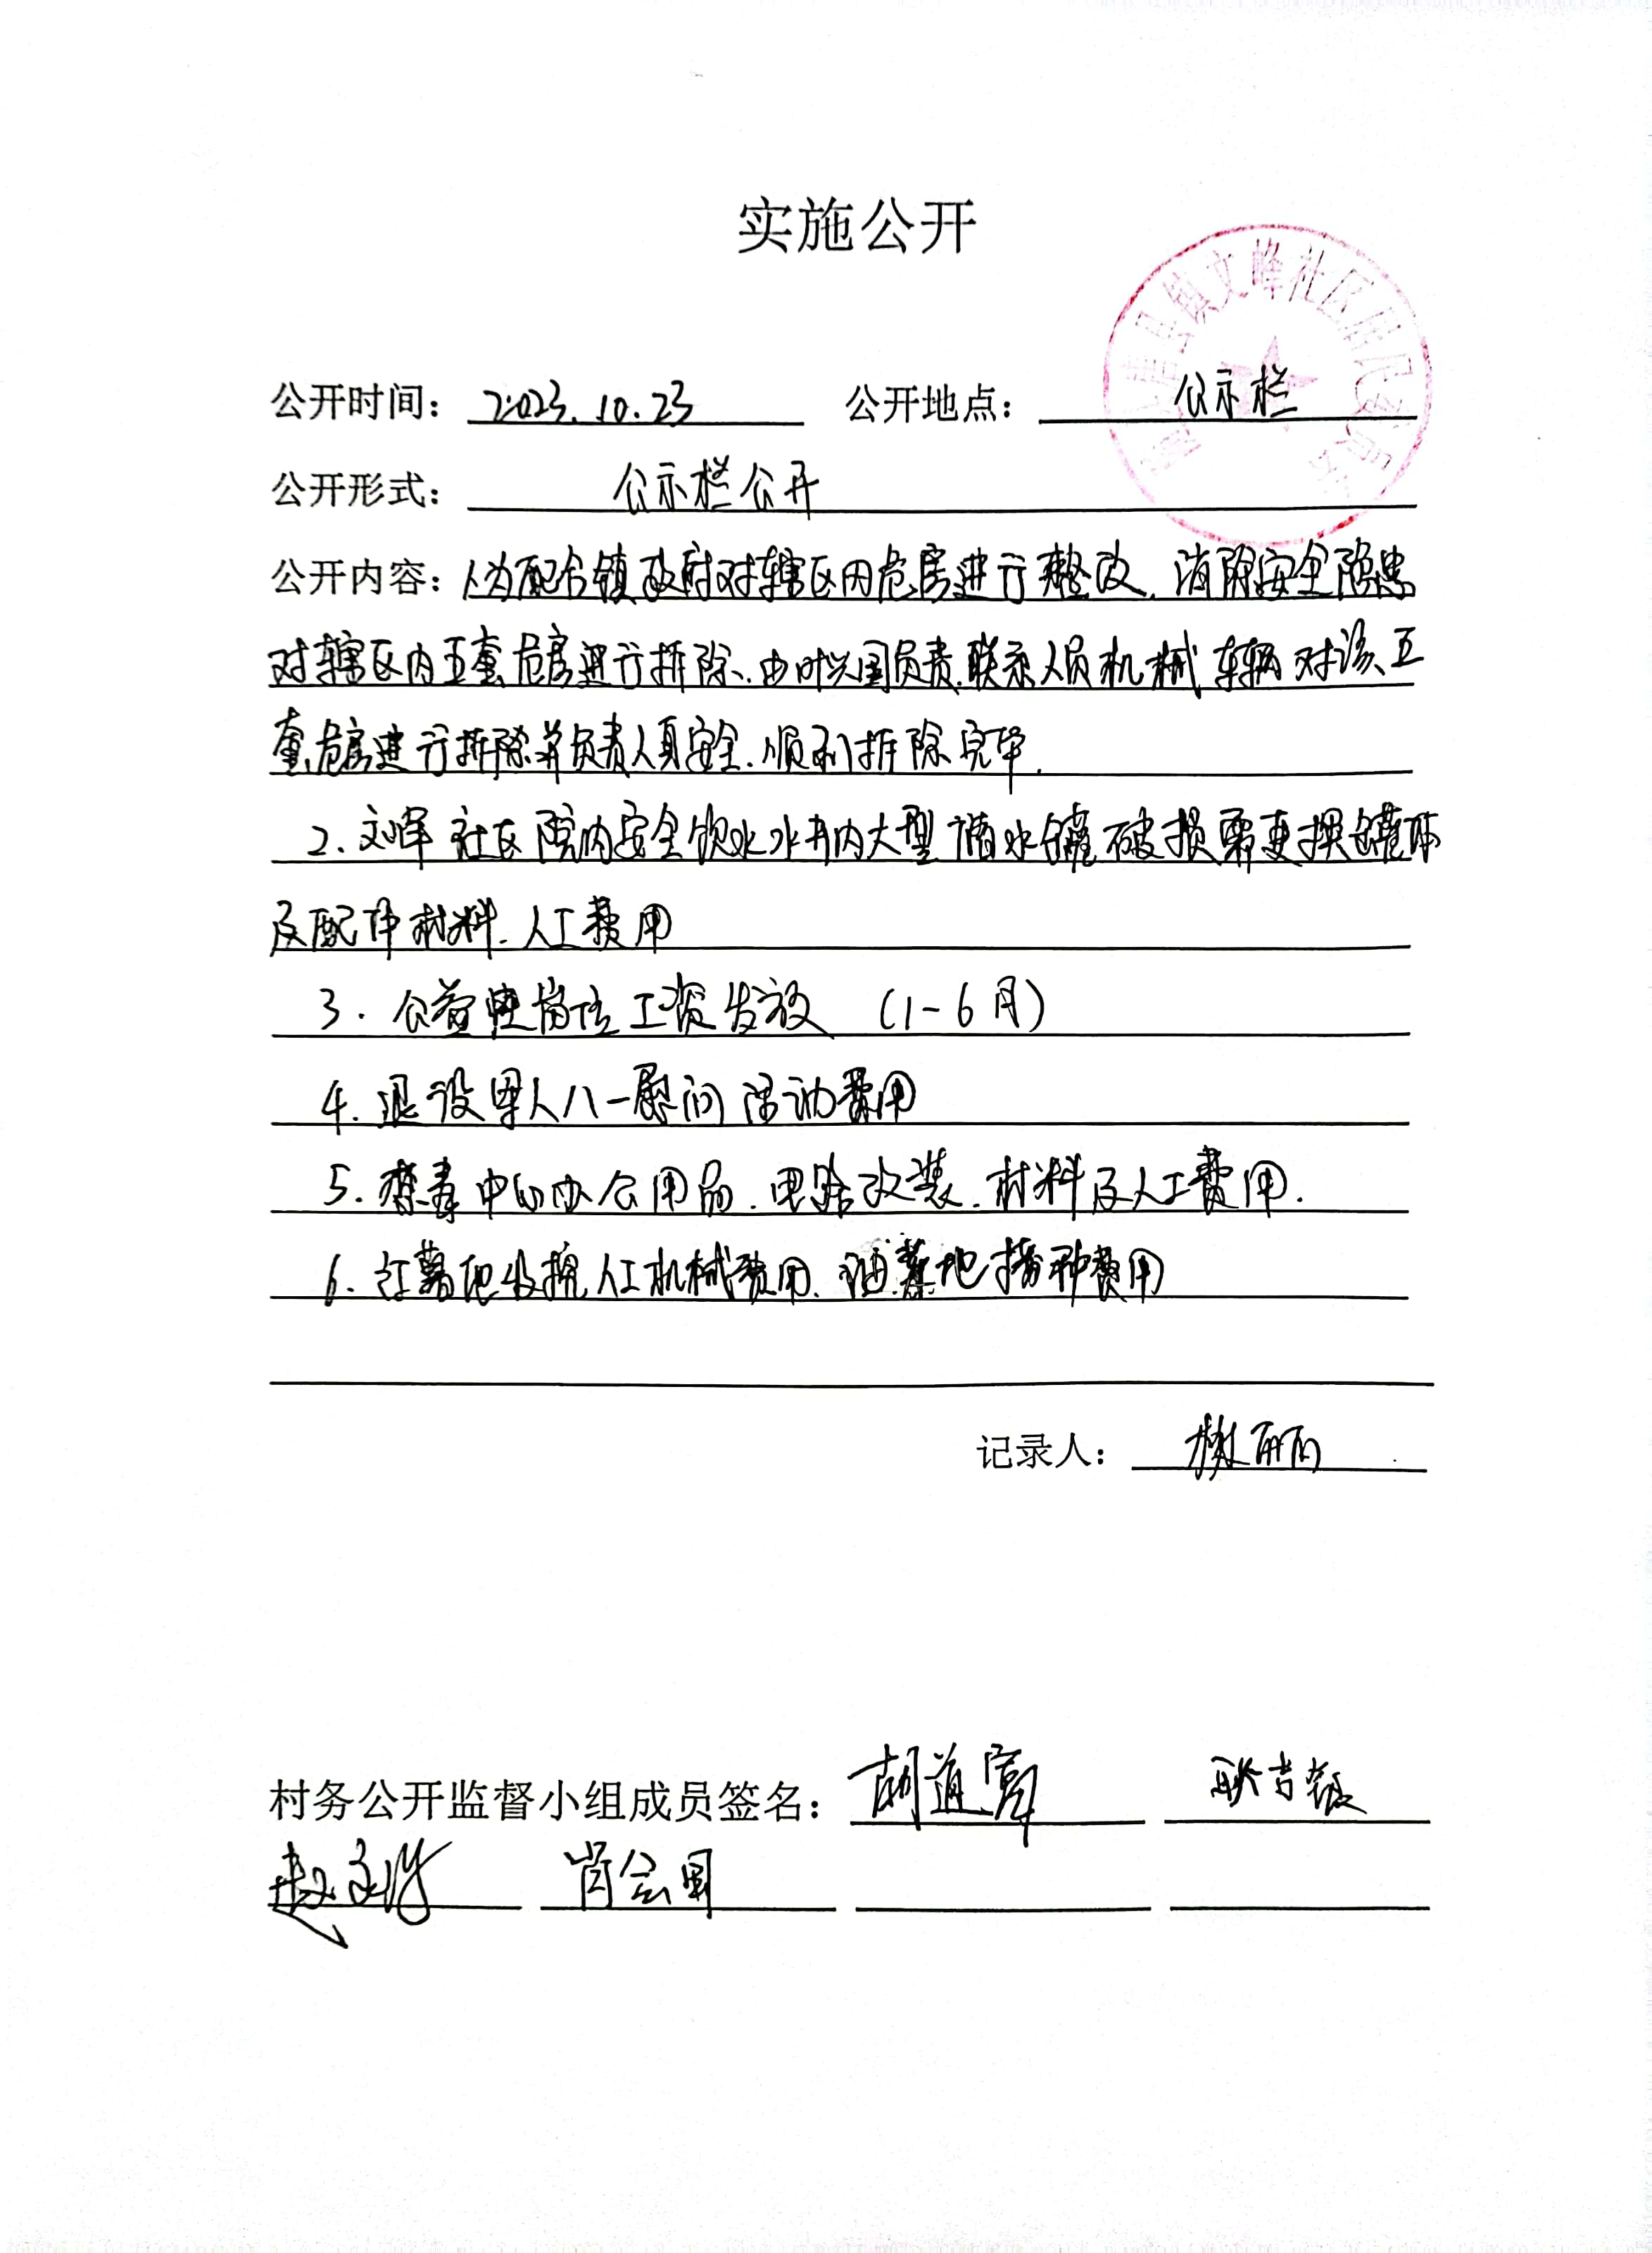 实施公开
镇文峰社区居民委员会
公开时间：2023.10.23 公开地点：公示栏
公开形式：公示栏公开
公开内容：1、为配合镇政府对辖区内危房进行整改、消除安全隐患
对辖区内五套危房进行拆除、由时兴国负责、联系人员机械车辆对该五
套危房进行拆除并负责人员安全、顺利拆除完毕.
2.文峰社区院内安全饮水水井内大型储水罐破损需更换罐体
及配件材料、人工费用
3.公益性岗位工资发放 (1-6月)
4.退役军人八一慰问活动费用
5.禁毒中心办公用品、电路改装、材料及人工费用.
6.红薯地收挖人工机械费用、油菜地播种费用
记录人：谢丽
村务公开监督小组成员签名：胡道富
赵 肖会国